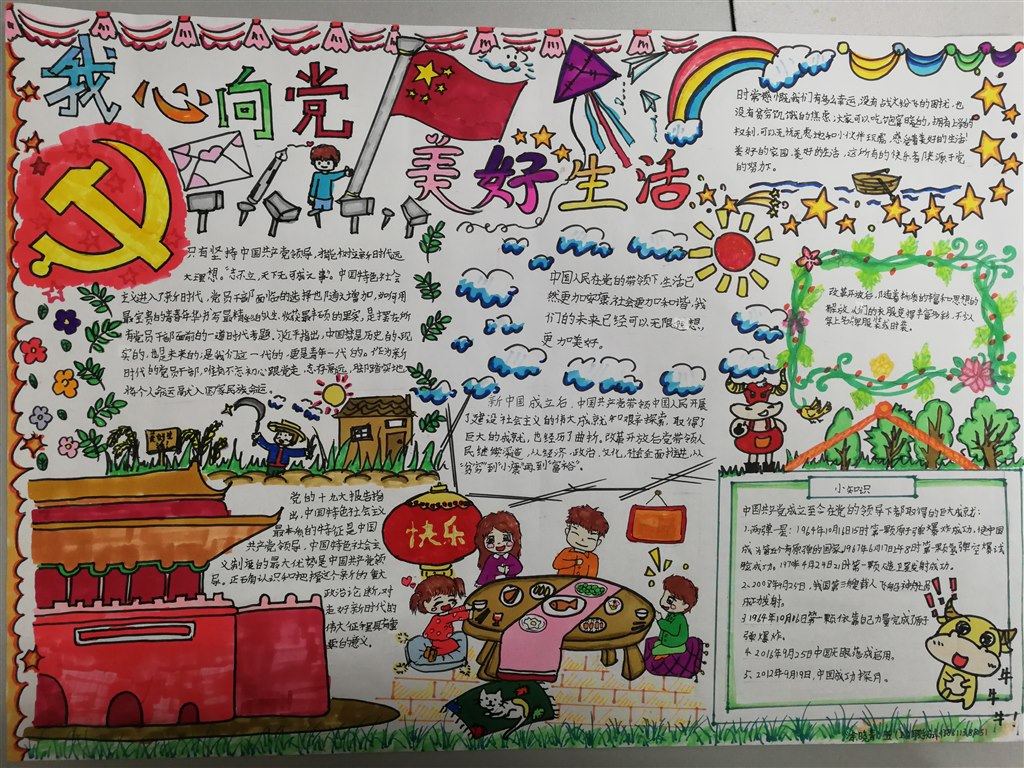 我心向党
美好生活
时常感慨,我们有多么幸运,没有战火纷飞的困扰,也
没有贫穷饥饿的焦虑,大家可以吃饱穿暖的,拥有上学的
权利,可以无忧无虑地和小伙伴玩耍,感受着美好的生活!
美好的家园,美好的生活,这所有的快乐者陕源于党
的努力。
只有坚持中国共产党领导,才能树立新时代远
大理想。"志不立,天下无可成之事"。中国特色社会
主义进入了新时代,党员干部面临的选择也随之增加,如何用
是摆在所
有党员干部面前的一道时代考题,
习近平指出,中国梦是历史的,现
实的,也是未来的;是我们这一代的,更是青年一代的。作为新
时代的党员干部,唯有不忘初心跟党走,志存高远,脚踏实地,
将个人命运融入国家民族命运。
中国人民在党的带领下生活已
然更加安康,社会更加和谐,我
们的未来已经可以无限 想,
更加美好。
改革开放后,随着物质的丰富和思想的
解放,人们的衣服变得丰富多彩,
新中国成立后,中国共产党带领中国人民开展
了建设社会主义的伟大成就和艰辛探索,取得了
巨大的成就,也经历了曲折,改革开放后党带领人
民继续奋进,从经济,政治,文化,社会全面推进,从
"贫穷"到"小康"再到"富裕"。
党的十九大报告指
出,中国特色社会主义
最本质的特征是中国
共产党领导,中国特色社会主
义制度的最大优势是中国共产党领
导。正确认识和把握这个新的重大
政治论断,对
走好新时代的
伟大征程具有重
要的意义。
快乐
小知识
中国共产党成立至今在党的领导下都取得的巨大成就:
1.两弹一星:1964年10月16日15时第一颗原子弹爆炸成功,使中国
成为第五个有原弹的国家,1967年6月17日上午8时第一颗氢弹空爆试
验成功。1970年4月24日21时第一颗人造卫星发射成功。
2.2008年9月25日,我国第三艘载人飞船神舟七号
成功发射。
3.1964年10月16日第一颗依靠自己力量完成了原子
弹爆炸。
4.2016年9月25日中国天眼落成启用。
5.
牛
牛
牛!